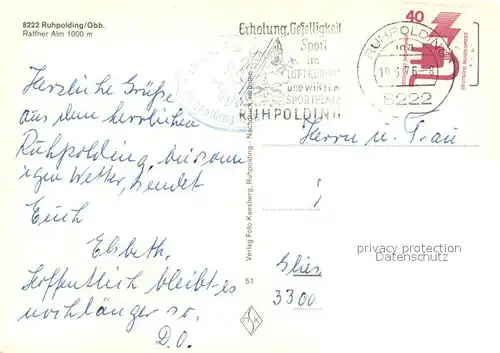 8222 Ruhpolding/Obb.
Raffner Alm 1000 m
Herzliche Grüße
aus dem herrlichen
Ruhpolding, bei sonn
igen Wetter, sendet
Euch
Elsbeth.
Hoffentlich bleibt es
noch länger so.
D.O.
Verlag Foto-Kaesberg, Ruhpolding · Nachdruck verboten
51
Erholung, Geselligkeit
Sport
im
LUFTKURORT
und WINTER
SPORTPLATZ
RUHPOLDING
RUHPOLDING
8222
40
DEUTSCHE BUNDESPOST
DEUTSCHE BUNDESPOST
Herrn u. Frau
privacy protection
Datenschutz
3300